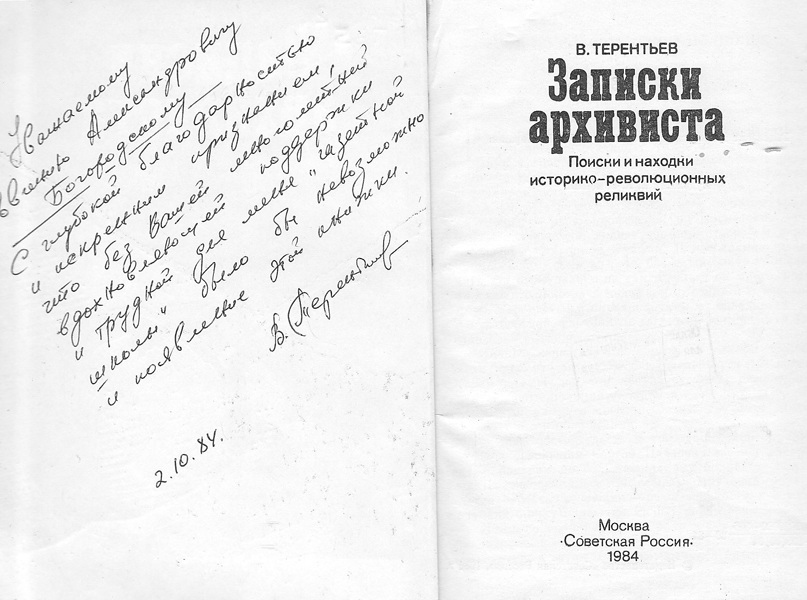 Уважаемому
Евгению Александровичу
Богородскому
С глубокой благодарностью
и искренним признанием,
что без Вашей многолетней
вдохновляющей поддержки
и трудной для меня "газетной
школы" было бы невозможно
и появление этой книжки.
В. Терентьев
2.10.84.
В. ТЕРЕНТЬЕВ
Записки
архивиста
Поиски и находки
историко-революционных
реликвий
Москва
·Советская Россия·
1984